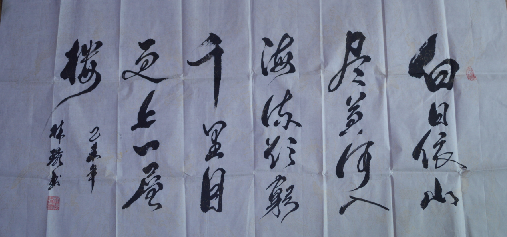 白日依山
尽黄河入
海流欲窮
千里目
更上一层
楼
乙未年